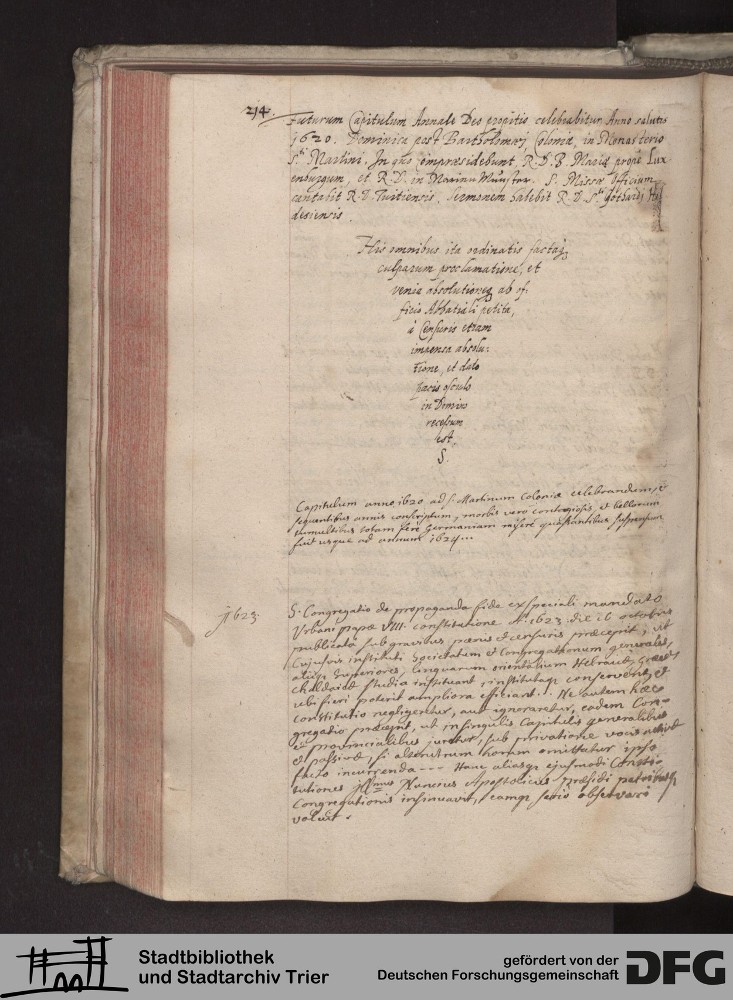 214.
Futurum Capitulum Annale Deo propitio celebrabitur Anno salutis
1620. Dominica post Bartholomæj, Coloniæ, in Monasterio
S.ti Martini. In quo compræsidebunt R. D. B. Mariæ prope Lux
enburgum, et R. D. in Marien Münster. S. Missæ Officium
cantabit R. D. Tuitiensis. Sermonem habebit R. D. S.ti Gothardi Hil
desiensis.
His omnibus ita ordinatis factaq3
culparum proclamatione, et
veniæ absolutioneq3 ab of-
ficio Abbatiali petita,
à Censuris etiam
impensa absolu-
tione, et dato
pacis osculo
in Domino
recessum
est.
S.
Capitulum anno 1620 ad S. Martinum Coloniæ celebrandum, et
sequentibus annis conscriptum, morbis vero contagiosis, et bellorum
tumultibus totam fere Germaniam misere quassantibus suspensum
fuit usque ad annum 1624...
1623.
S. Congregatio de propaganda fide ex speciali mandato
Urbani papæ VIII. constitutione A.o 1623 die 16 octobris
publicata sub gravibus pœnis et censuris præcepit, ut
Cujusvis instituti Societatum et Congregationum generales,
aliiq3 Superiores, linguarum orientalium Hebraicæ, Græcæ,
Chaldaicæ studia instituant, institutaq3 conservent, et
ubi fieri poterit ampliora efficiant... Ne autem hæc
constitutio negligeretur, aut ignoraretur, eadem Con-
gregatio præcepit, ut in singulis Capitulis generalibus
et provincialibus juretur, sub privatione vocis activæ
et passivæ, si alterutrum horum omittatur ipso
facto incurrenda --- Hanc aliasq3 ejusmodi Constitu-
tutiones Ill.mus Nuncius Apostolicus Præsidi patribusq3
Congregationis insinuavit, eamq3 serio observari
voluit.
Stadtbibliothek
und Stadtarchiv Trier
gefördert von der
Deutschen Forschungsgemeinschaft
DFG